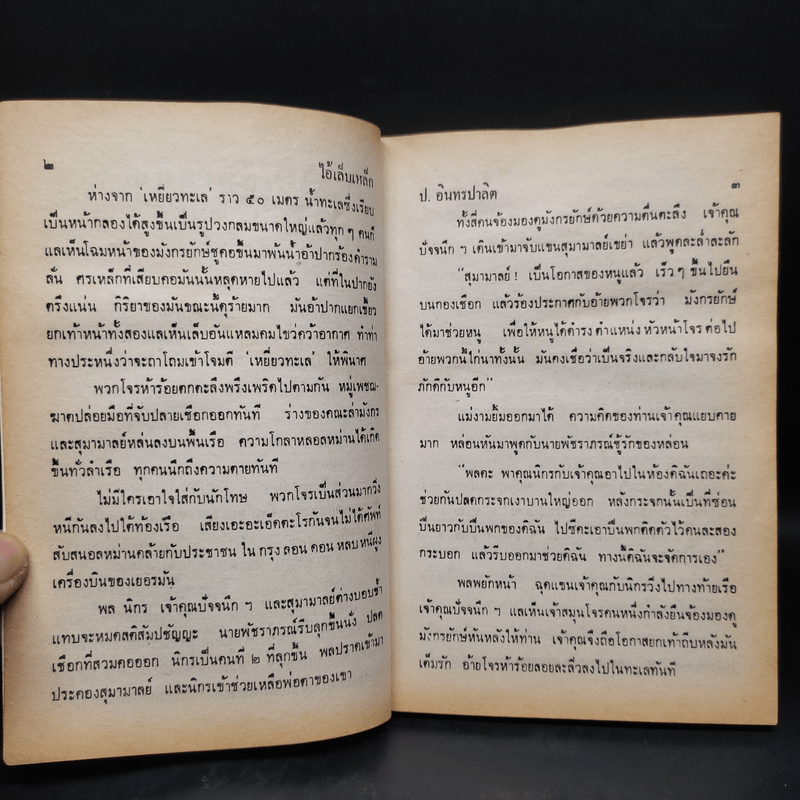 ๒
ไอ้เล็บเหล็ก
ห่างจาก ‘เหยี่ยวทะเล’ ราว ๕๐ เมตร น้ำทะเลซึ่งเรียบ
เป็นหน้ากลองได้สูงขึ้นเป็นรูปวงกลมขนาดใหญ่แล้วทุก ๆ คนก็
แลเห็นโฉมหน้าของมังกรยักษ์ชูคอขึ้นมาพ้นน้ำอ้าปากร้องคำราม
ลั่น ศรเหล็กที่เสียบคอมันนั้นหลุดหายไปแล้ว แต่ที่ในปากยัง
ตรึงแน่น กิริยาของมันขณะนี้ดุร้ายมาก มันอ้าปากแยกเขี้ยว
ยกเท้าหน้าทั้งสองแลเห็นเล็บอันแหลมคมไขว่คว้าอากาศ ทำท่า
ทางประหนึ่งว่าจะถาโถมเข้าโจมตี ‘เหยี่ยวทะเล’ ให้พินาศ
พวกโจรห้าร้อยตกตะลึงพรึงเพริดไปตามกัน หมู่เพชฌ-
ฆาตปล่อยมือที่จับปลายเชือกออกทันที ร่างของคณะล่ามังกร
และสุมามาลย์หล่นลงบนพื้นเรือ ความโกลาหลอลหม่านได้เกิด
ขึ้นทั่วลำเรือ ทุกคนนึกถึงความตายทันที
ไม่มีใครเอาใจใส่กับนักโทษ พวกโจรเป็นส่วนมากวิ่ง
หนีกันลงไปใต้ท้องเรือ เสียงเอะอะเอ็ดตะโรกันจนไม่ได้ศัพท์
สับสนอลหม่านคล้ายกับประชาชน ใน กรุง ลอน ดอน หลบหนีฝูง
เครื่องบินของเยอรมัน
พล นิกร เจ้าคุณปัจจนึก ฯ และสุมามาลย์ต่างบอบช้ำ
แทบจะหมดสติสัมปชัญญะ นายพัชราภรณ์รีบลุกขึ้นนั่ง ปลด
เชือกที่สวมคอออก นิกรเป็นคนที่ ๒ ที่ลุกขึ้น พลปราดเข้ามา
ประคองสุมามาลย์ และนิกรเข้าช่วยเหลือพ่อตาของเขา
ป. อินทรปาลิต
๓
ทั้งสี่คนจ้องมองดูมังกรยักษ์ด้วยความตื่นตะลึง เจ้าคุณ
ปัจจนึก ฯ เดินเข้ามาจับแขนสุมามาลย์เขย่า แล้วพูดละล่ำละลัก
“สุมามาลย์ ! เป็นโอกาสของหนูแล้ว เร็ว ๆ ขึ้นไปยืน
บนกองเชือก แล้วร้องประกาศกับอ้ายพวกโจรว่า มังกรยักษ์
ได้มาช่วยหนู เพื่อให้หนูได้ดำรง ตำแหน่ง หัวหน้าโจร ต่อไป
อ้ายพวกนี้โง่นาทั้งนั้น มันคงเชื่อว่าเป็นจริงและกลับใจมาจงรัก
ภักดีกับหนูอีก”
แม่งามยิ้มออกมาได้ ความคิดของท่านเจ้าคุณแยบคาย
มาก หล่อนหันมาพูดกับนายพัชราภรณ์ชู้รักของหล่อน
“พลคะ พาคุณนิกรกับเจ้าคุณอาไปในห้องดิฉันเถอะค่ะ
ช่วยกันปลดกระจกเงาบานใหญ่ออก หลังกระจกนั้นเป็นที่ซ่อน
ปืนยาวกับปืนพกของดิฉัน ไปซีคะเอาปืนพกติดตัวไว้คนละสอง
กระบอก แล้วรีบออกมาช่วยดิฉัน ทางนี้ดิฉันจะจัดการเอง”
พลพยักหน้า ฉุดแขนเจ้าคุณกับนิกรวิ่งไปทางท้ายเรือ
เจ้าคุณปัจจนึก ฯ แลเห็นเจ้าสมุนโจรคนหนึ่งกำลังยืนจ้องมองดู
มังกรยักษ์หันหลังให้ท่าน เจ้าคุณจึงถือโอกาสยกเท้าถีบหลังมัน
เต็มรัก อ้ายโจรห้าร้อยลอยละลิ่วลงไปในทะเลทันที